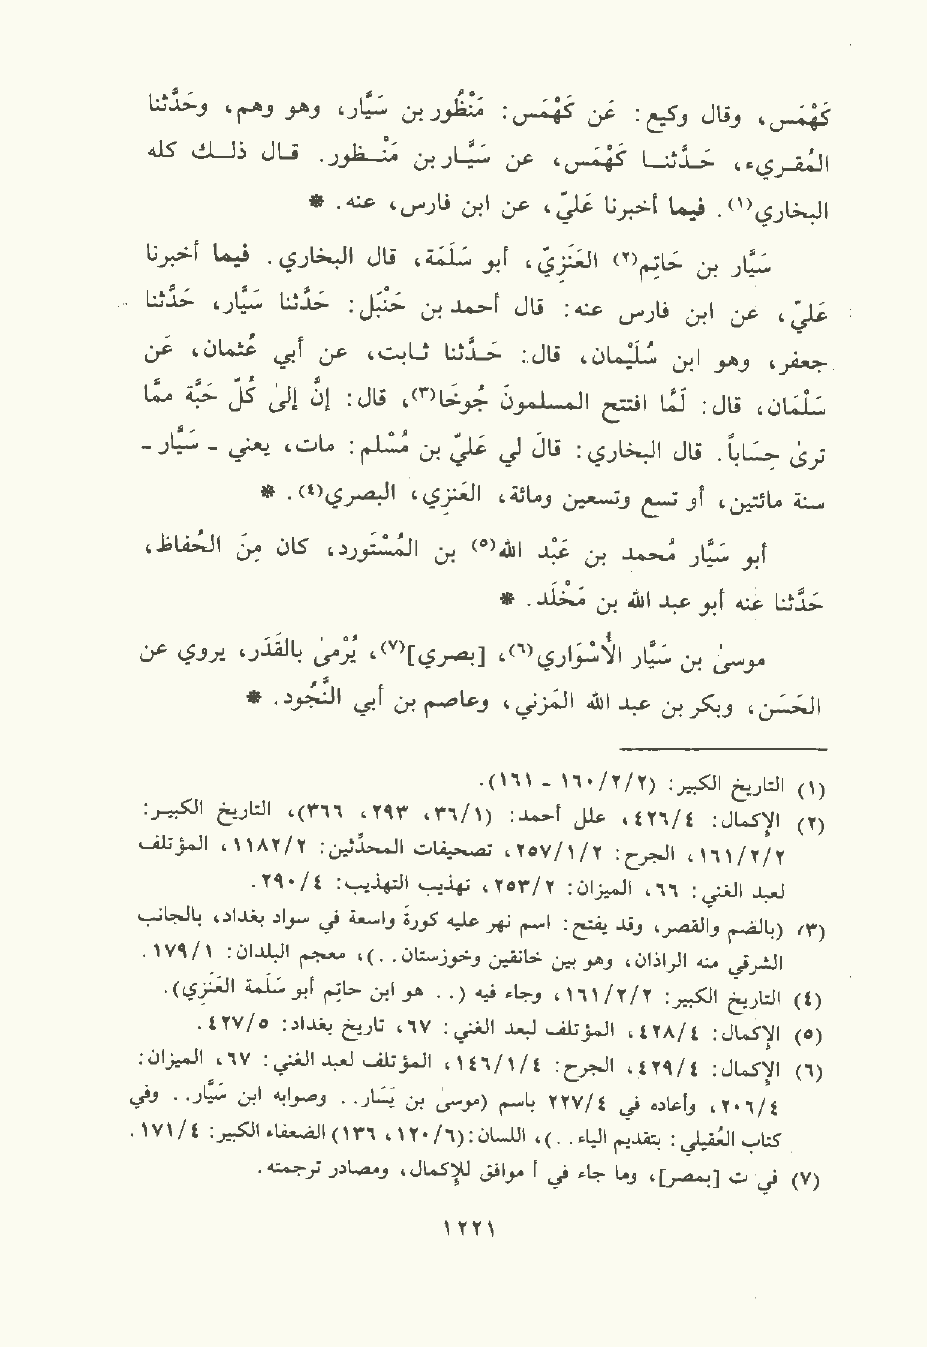 كَهْمَس، وقال وكيع: عَن كَهْمَس: مَنْظُور بن سَيَّار، وهو وهم، وحَدَّثنا
المُقرىء، حَدثنا كَهْمَس، عن سَيَّار بن مَنْظور. قال ذلك كله
البخاري(١). فيما أخبرنا عَليّ، عن ابن فارس، عنه. *
سَيَّار بن حَاتِم(٢) العَنَزِيّ، أبو سَلَمَة، قال البخاري. فيما أخبرنا
عَليّ، عن ابن فارس عنه: قال أحمد بن حَنْبَل: حَدَّثنا سَيَّار، حَدَّثنا
جعفر، وهو ابن سُلَيْمان، قال: حَدثنا ثابت، عن أبي عُثمان، عَن
سَلْمَان، قال: لَمَّا افتتح المسلمونَ جُوخَا(٣)، قال: إنَّ إلىٰ كُلِّ حَبَّة ممَّا
ترىٰ حِسَاباً. قال البخاري: قالَ لي عَليّ بن مُسْلم: مات، يعني - سَيَّار -
سنة مائتين، أو تسع وتسعين ومائة، العَنزِي، البصري(٤). *
أبو سَيَّار مُحمد بن عَبْد الله(٥) بن المُسْتَورد، كان مِنَ الحُفاظ،
حَدَّثنا عنه أبو عبد الله بن مَخْلَد. *
موسىٰ بن سَيَّار الأُسْوَاري(٦)، [بصري](٧)، يُرْمىٰ بالقَدَر، يروي عن
الحَسَن، وبكر بن عبد الله المَزني، وعاصم بن أبي النَّجُود. *
(١) التاريخ الكبير: (١٦٠/٢/٢ - ١٦١).
(٢) الإكمال: ٤٢٦/٤، علل أحمد: (٣٦/١، ٢٩٣، ٣٦٦)، التاريخ الكبير:
١٦١/٢/٢، الجرح: ٢٥٧/١/٢، تصحيفات المحدِّثين: ١١٨٢/٢، المؤتلف
لعبد الغني: ٦٦، الميزان: ٢٥٣/٢، تهذيب التهذيب: ٢٩٠/٤.
(٣) (بالضم والقصر، وقد يفتح: اسم نهر عليه كورَة واسعة في سواد بغداد، بالجانب
الشرقي منه الراذان، وهو بين خانقين وخوزستان. .)، معجم البلدان: ١٧٩/١.
(٤) التاريخ الكبير: ١٦١/٢/٢، وجاء فيه (. . هو ابن حاتِم أبو سَلَمة العَنَزِي).
(٥) الإكمال: ٤٢٨/٤، المؤتلف لعبد الغني: ٦٧، تاريخ بغداد: ٤٢٧/٥.
(٦) الإكمال: ٤٢٩/٤، الجرح: ١٤٦/١/٤، المؤتلف لعبد الغني: ٦٧، الميزان:
٢٠٦/٤، وأعاده في ٢٢٧/٤ باسم (موسىٰ بن يَسَار. . وصوابه ابن سَيَّار. . وفي
كتاب العُقيلي: بتقديم الياء. .)، اللسان:(١٢٠/٦، ١٣٦)الضعفاء الكبير: ١٧١/٤.
(٧) في ت [بمصر]، وما جاء في أ موافق للإكمال، ومصادر ترجمته.
١٢٢١